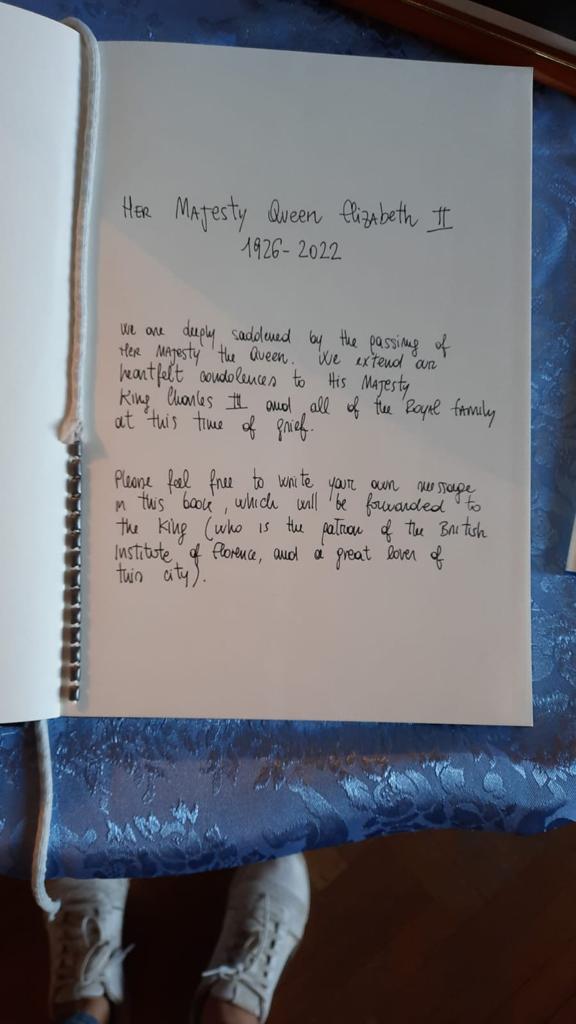 Her Majesty Queen Elizabeth II
1926-2022
We are deeply saddened by the passing of
Her Majesty the Queen. We extend our
heartfelt condolences to His Majesty
King Charles III and all of the Royal family
at this time of grief.
Please feel free to write your own message
in this book, which will be forwarded to
the King (who is the patron of the British
Institute of Florence, and a great lover of
this city).